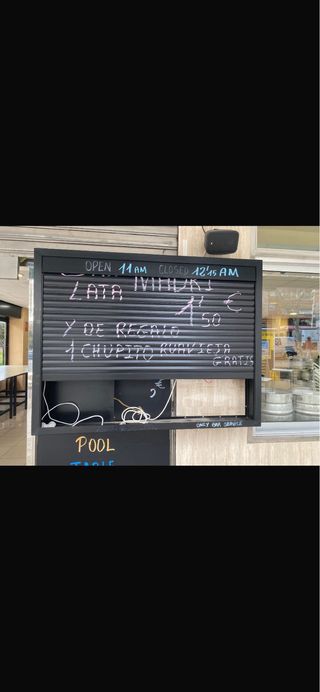 OPEN 11AM CLOSED 12'15 AM
LATA MAHOKI
1'50 €
Y DE REGALO
1 CHUPITO RUAVIEJA
GRATIS
€
ONLY BAR SERVICE
POOL
TABLE